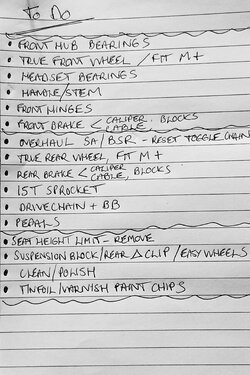 To Do
• FRONT HUB BEARINGS
• TRUE FRONT WHEEL / FIT M+
• HEADSET BEARINGS
• HANDLE/STEM
• FRONT HINGES
• FRONT BRAKE < CALIPER, BLOCKS
CABLE
• OVERHAUL SA/BSR - RESET TOGGLE CHAIN
• TRUE REAR WHEEL, FIT M+
• REAR BRAKE < CALIPER, BLOCKS
CABLE
• 15T SPROCKET
• DRIVECHAIN + BB
• PEDALS
• SEAT HEIGHT LIMIT - REMOVE
• SUSPENSION BLOCK/REAR Δ CLIP/EASYWHEELS
• CLEAN/POLISH
• TINFOIL/VARNISH PAINT CHIPS